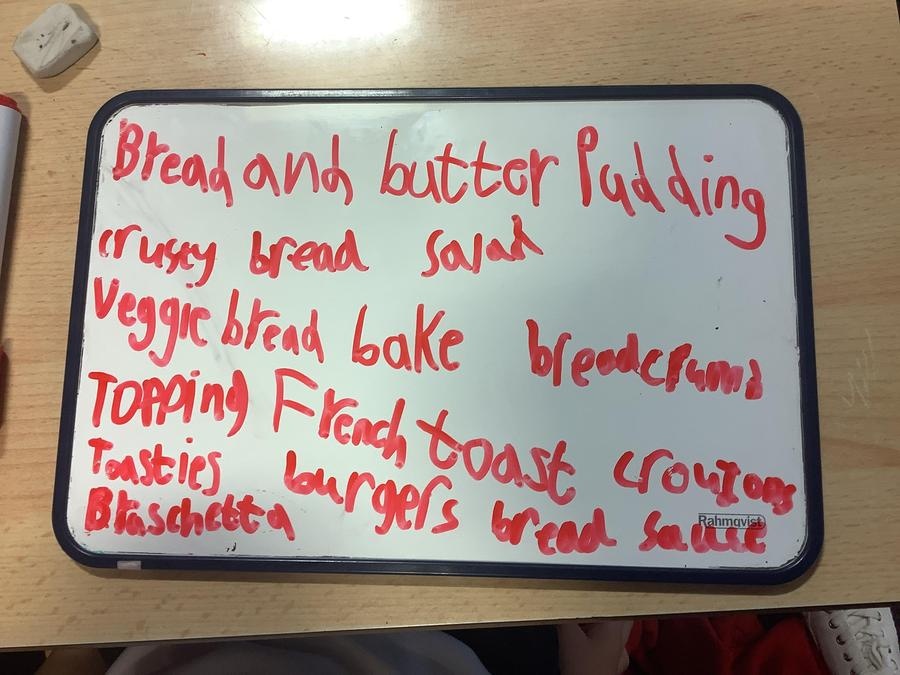 Bread and butter Pudding
crusty bread salad
Veggie bread bake breadcrumb
Topping French toast croutons
Toasties burgers bread sauce
Bruschetta
Rahmqvist